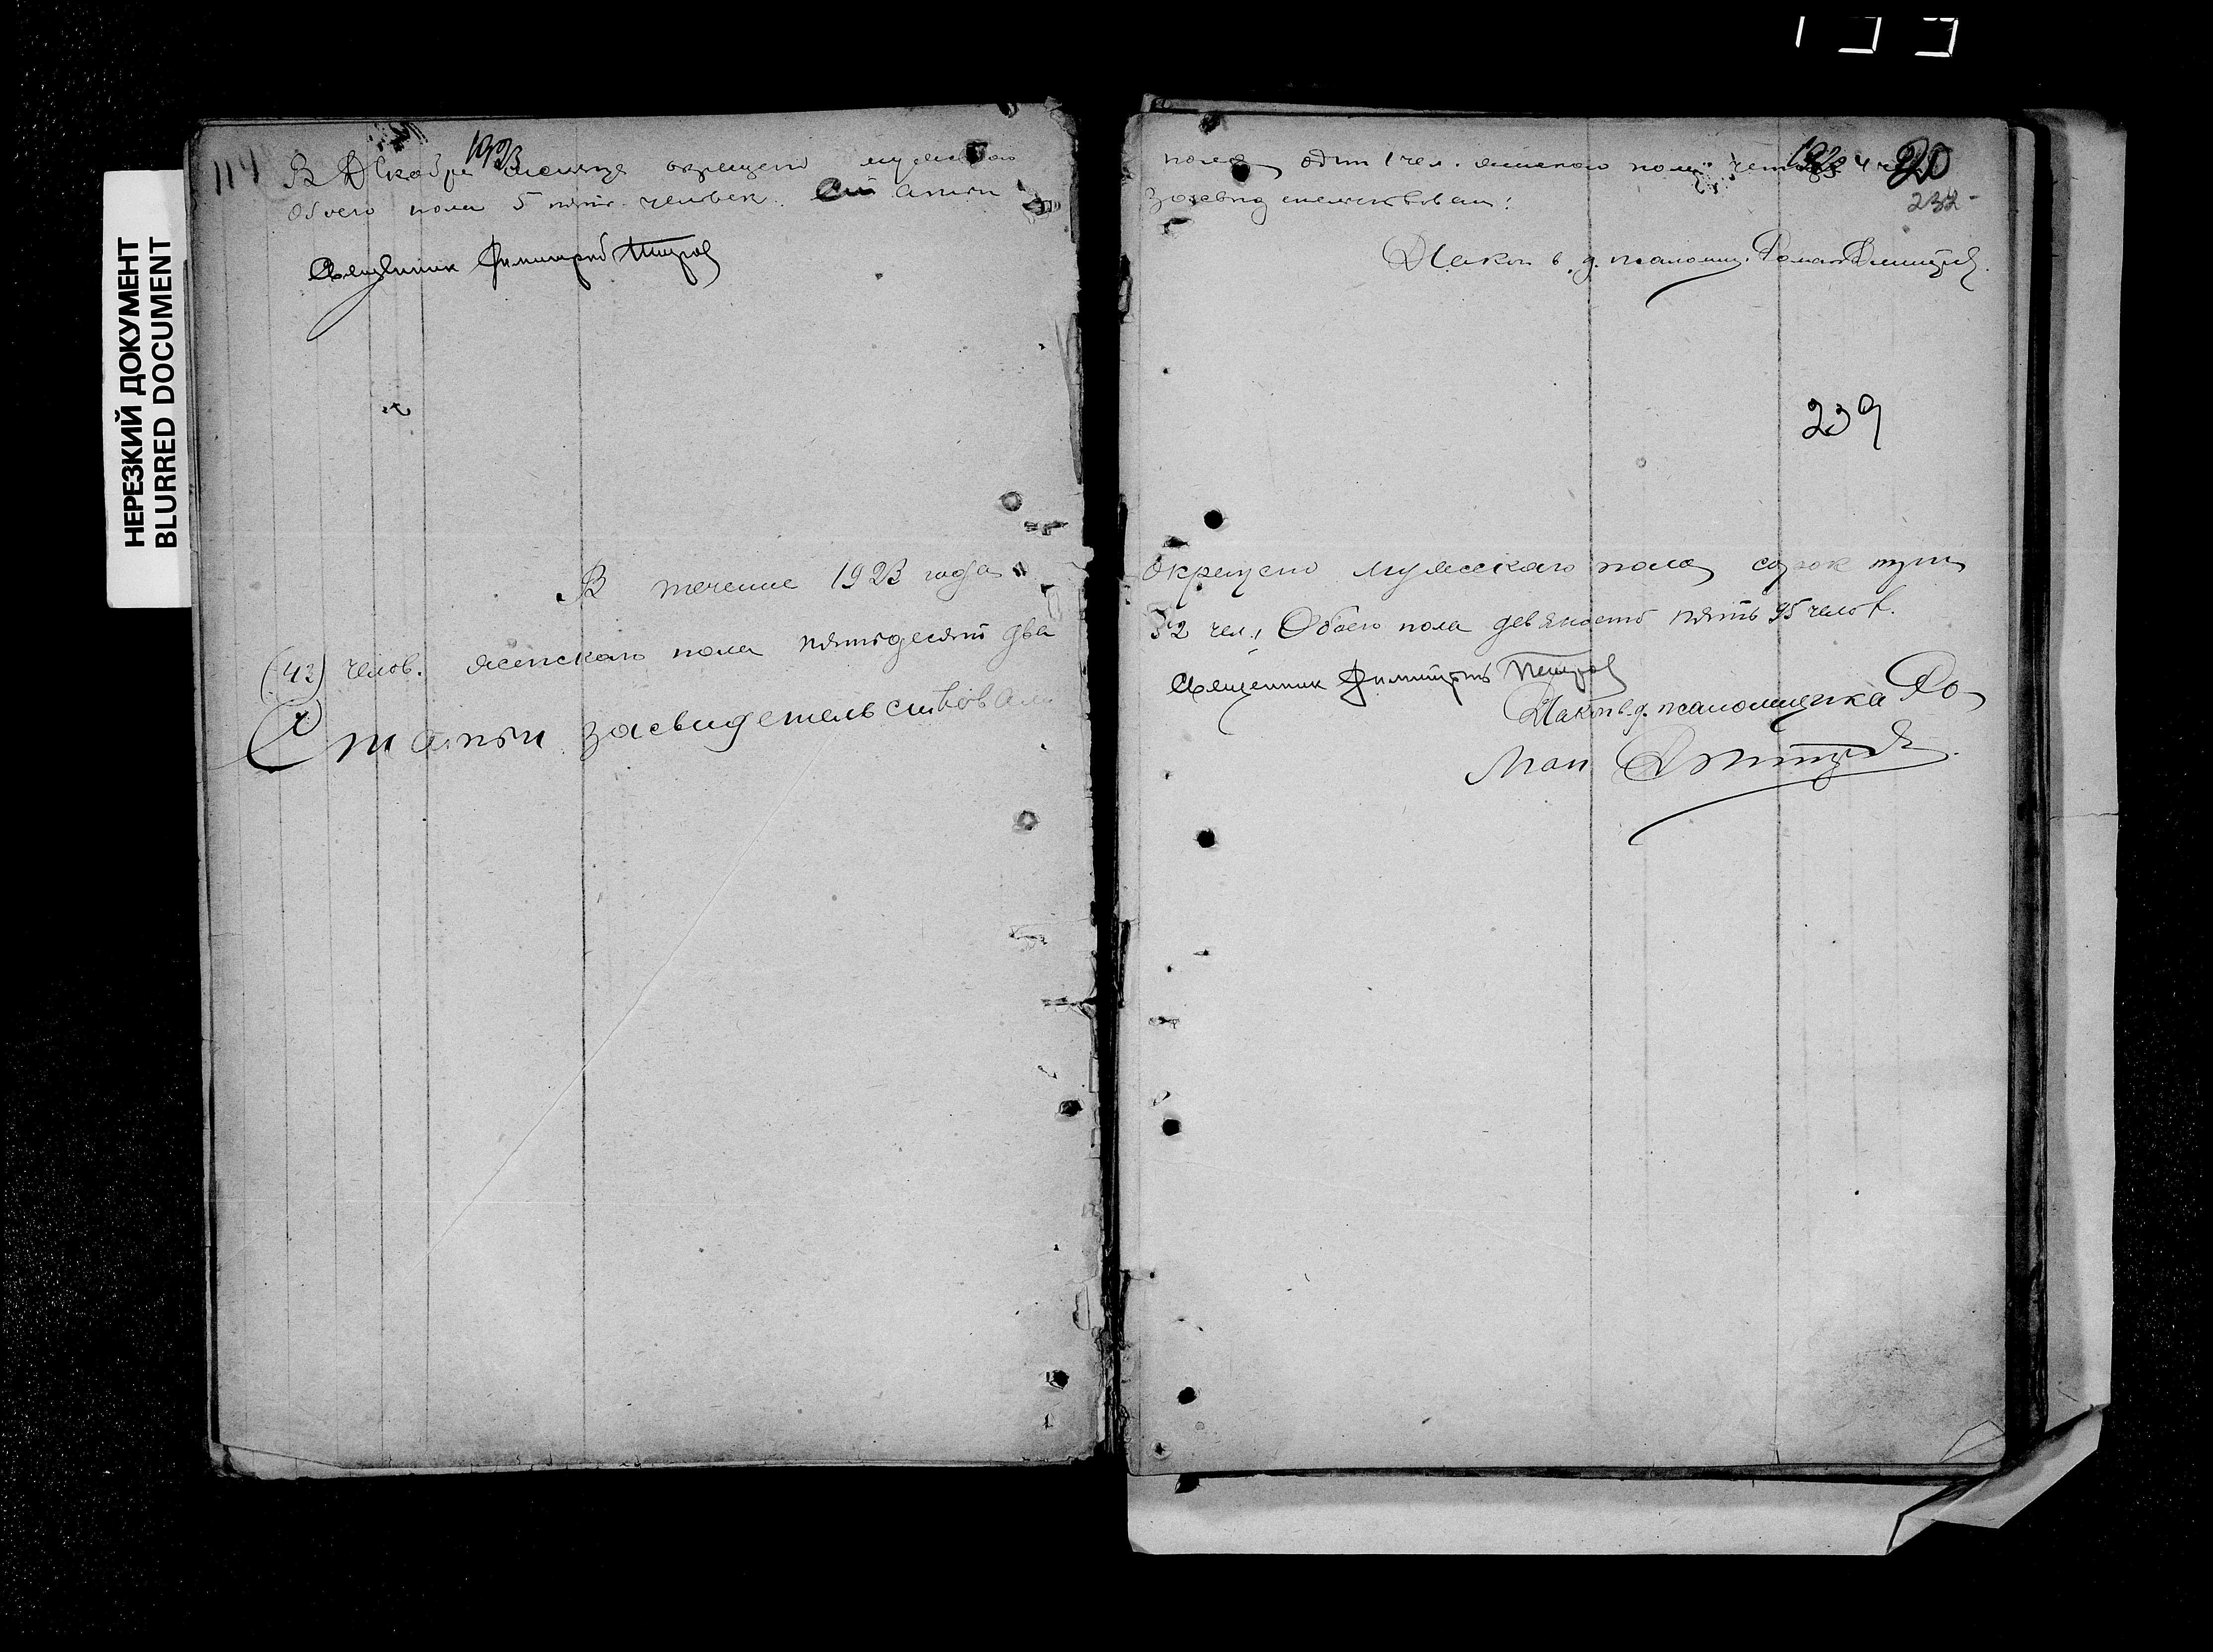 199
НЕРЕЗКИЙ ДОКУМЕНТ
BLURRED DOCUMENT
114
1923
В Декабре месяце окрещено мужского
обоего пола 5 пять человек. Статьи
Священник Димитрий Петров
В течение 1923 года
(43) челов. женского пола пятьдесят два
Статьи засвидетельствовали
1923 20
232
пола один 1 чел. женского пола 4
засвидетельствовали:
Диакон в. д. псаломщ. Роман Димитриев.
239
окрещено мужского пола сорок три
52 чел., Обоего пола девяносто пять 95 челов.
Священник Димитрий Петров
Диакон в. д. псаломщика Ро-
ман Дмитриев.